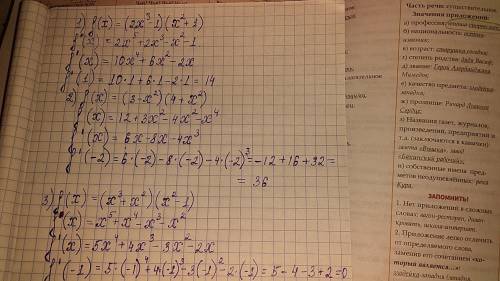 1) f(x)=(2x³-1)(x²+1)
f'(x)=2x⁵+2x³-x²-1
f'(x)=10x⁴+6x²-2x
f'(1)=10·1+6·1-2·1=14
2) f(x)=(3-x²)(4+x²)
f(x)=12+3x²-4x²-x⁴
f'(x)=6x-8x-4x³
f'(-2)=6·(-2)-8·(-2)-4·(-2)³=-12+16+32=
=36
3) f(x)=(x³+x²)(x²-1)
f(x)=x⁵+x⁴-x³-x²
f'(x)=5x⁴+4x³-3x²-2x
f'(-1)=5·(-1)⁴+4·(-1)³-3(-1)²-2·(-1)=5-4-3+2=0
Часть речи: существительное
Значения приложений:
а) профессия:
б) национальность:
в) возраст:
г) степень родства: дядя Васиф;
д) звание: Герой Азербайджана
е) качество предмета:
ж) прозвище: Ричард Львиное
Сердце;
з) Названия газет, журналов,
произведений, предприятий и
т.д. (заключаются в кавычки)
и) собственные имена пред-
метов неодушевлённых: река
Кура.
ЗАПОМНИТЕ!
1. Нет приложений в сложных
словах: вагон-ресторан,
2. Приложение легко отличить
от определяемого слова,
заменив его сочетанием «ко-
торый является...»: